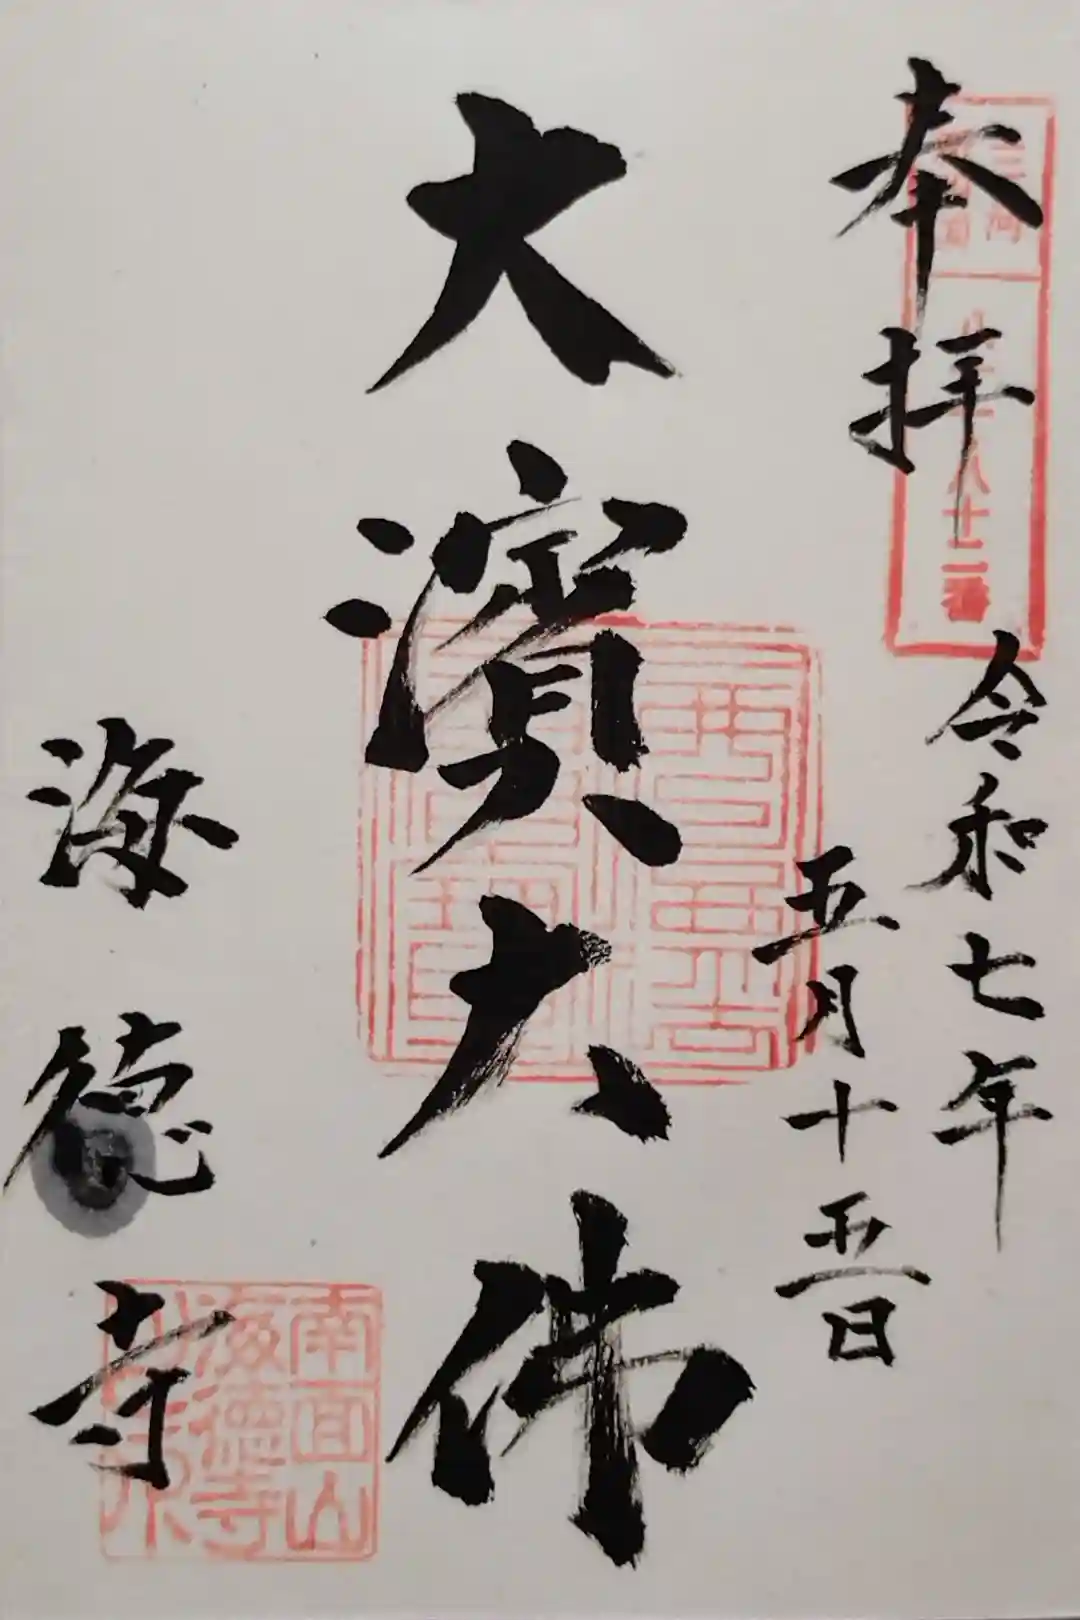 奉拝
令和七年
五月十五日
大濱大佛
海徳寺
三河
八十二番
南面山
海徳寺